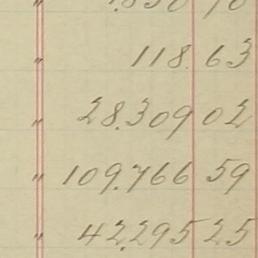 " 118. 63
" 28.309 02
" 109.766 59
" 42.295 25